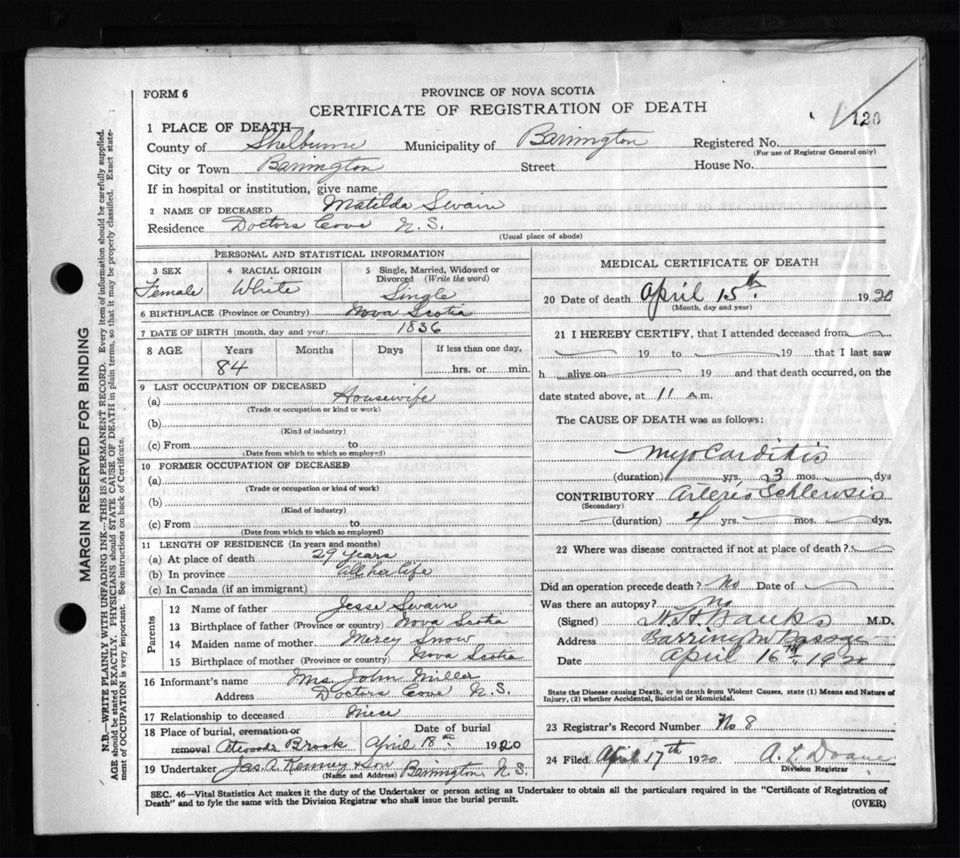 FORM 6
PROVINCE OF NOVA SCOTIA
CERTIFICATE OF REGISTRATION OF DEATH
120
1 PLACE OF DEATH
County of Shelburne Municipality of Barrington Registered No.
(For use of Registrar General only)
City or Town Barrington Street House No.
If in hospital or institution, give name
2 NAME OF DECEASED Matilda Swain
Residence Doctors Cove N.S.
(Usual place of abode)
PERSONAL AND STATISTICAL INFORMATION
3 SEX 4 RACIAL ORIGIN 5 Single, Married, Widowed or Divorced (Write the word)
Female White Single
6 BIRTHPLACE (Province or Country) Nova Scotia
7 DATE OF BIRTH (month, day and year) 1836
8 AGE Years Months Days If less than one day,
84 hrs. or min.
9 LAST OCCUPATION OF DECEASED
(a) Housewife
(Trade or occupation or kind or work)
(b)
(Kind of industry)
(c) From to
(Date from which to which so employed)
10 FORMER OCCUPATION OF DECEASED
(a)
(Trade or occupation or kind of work)
(b)
(Kind of industry)
(c) From to
(Date from which to which so employed)
11 LENGTH OF RESIDENCE (In years and months)
(a) At place of death 29 years
(b) In province All her life
(c) In Canada (if an immigrant)
Parents
12 Name of father Jesse Swain
13 Birthplace of father (Province or country) Nova Scotia
14 Maiden name of mother Mercy Snow
15 Birthplace of mother (Province or country) Nova Scotia
16 Informant's name Mrs John Miller
Address Doctors Cove N.S.
17 Relationship to deceased Niece
18 Place of burial, cremation or removal Atwoods Brook Date of burial April 18th 1920
19 Undertaker Jas. A. Kenney & Son Barrington N.S.
(Name and Address)
MEDICAL CERTIFICATE OF DEATH
20 Date of death April 15th 1920
(Month, day and year)
21 I HEREBY CERTIFY, that I attended deceased from
19 to 19 that I last saw
h alive on 19 and that death occurred, on the
date stated above, at 11 a m.
The CAUSE OF DEATH was as follows:
Myocarditis
(duration) yrs. 3 mos. dys
CONTRIBUTORY Arterio Schlerosis
(Secondary)
(duration) 4 yrs mos. dys.
22 Where was disease contracted if not at place of death?
Did an operation precede death? No Date of
Was there an autopsy? No
(Signed) H. H. Banks M.D.
Address Barrington Passage
Date April 16th, 1920
State the Disease causing Death, or in death from Violent Causes, state (1) Means and Nature of
Injury, (2) whether Accidental, Suicidal or Homicidal.
23 Registrar's Record Number No 8
24 Filed April 17th 1920 A L Doane
Division Registrar
SEC. 46—Vital Statistics Act makes it the duty of the Undertaker or person acting as Undertaker to obtain all the particulars required in the "Certificate of Registration of
Death" and to fyle the same with the Division Registrar who shall issue the burial permit.
(OVER)
MARGIN RESERVED FOR BINDING
N.B.—WRITE PLAINLY, WITH UNFADING INK—THIS IS A PERMANENT RECORD. Every item of information should be carefully supplied.
AGE should be stated EXACTLY. PHYSICIANS should STATE CAUSE OF DEATH in plain terms, so that it may be properly classified. Exact statement of OCCUPATION is very important. See instructions on back of Certificate.